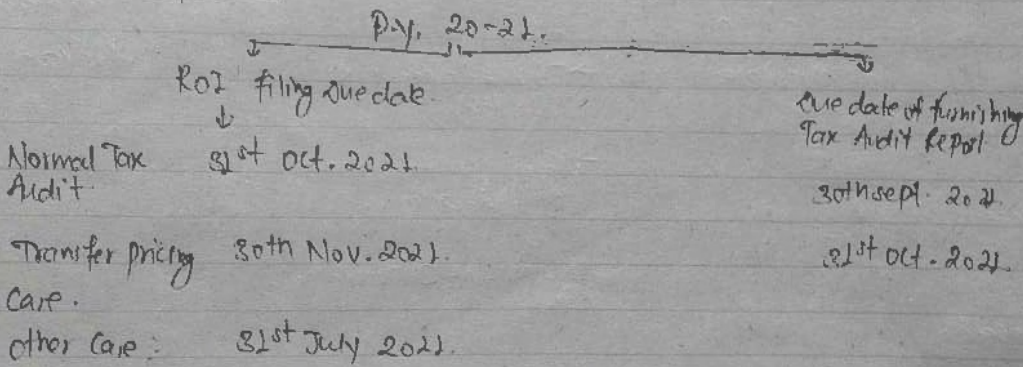 P.Y. 20-21.
ROI filing due date.
due date of furnishing
Tax Audit Report
Normal Tax 31st Oct. 2021.
Audit.
30th sept. 2021.
Transfer pricing 30th Nov. 2021.
31st oct. 2021.
case.
other case: 31st July 2021.